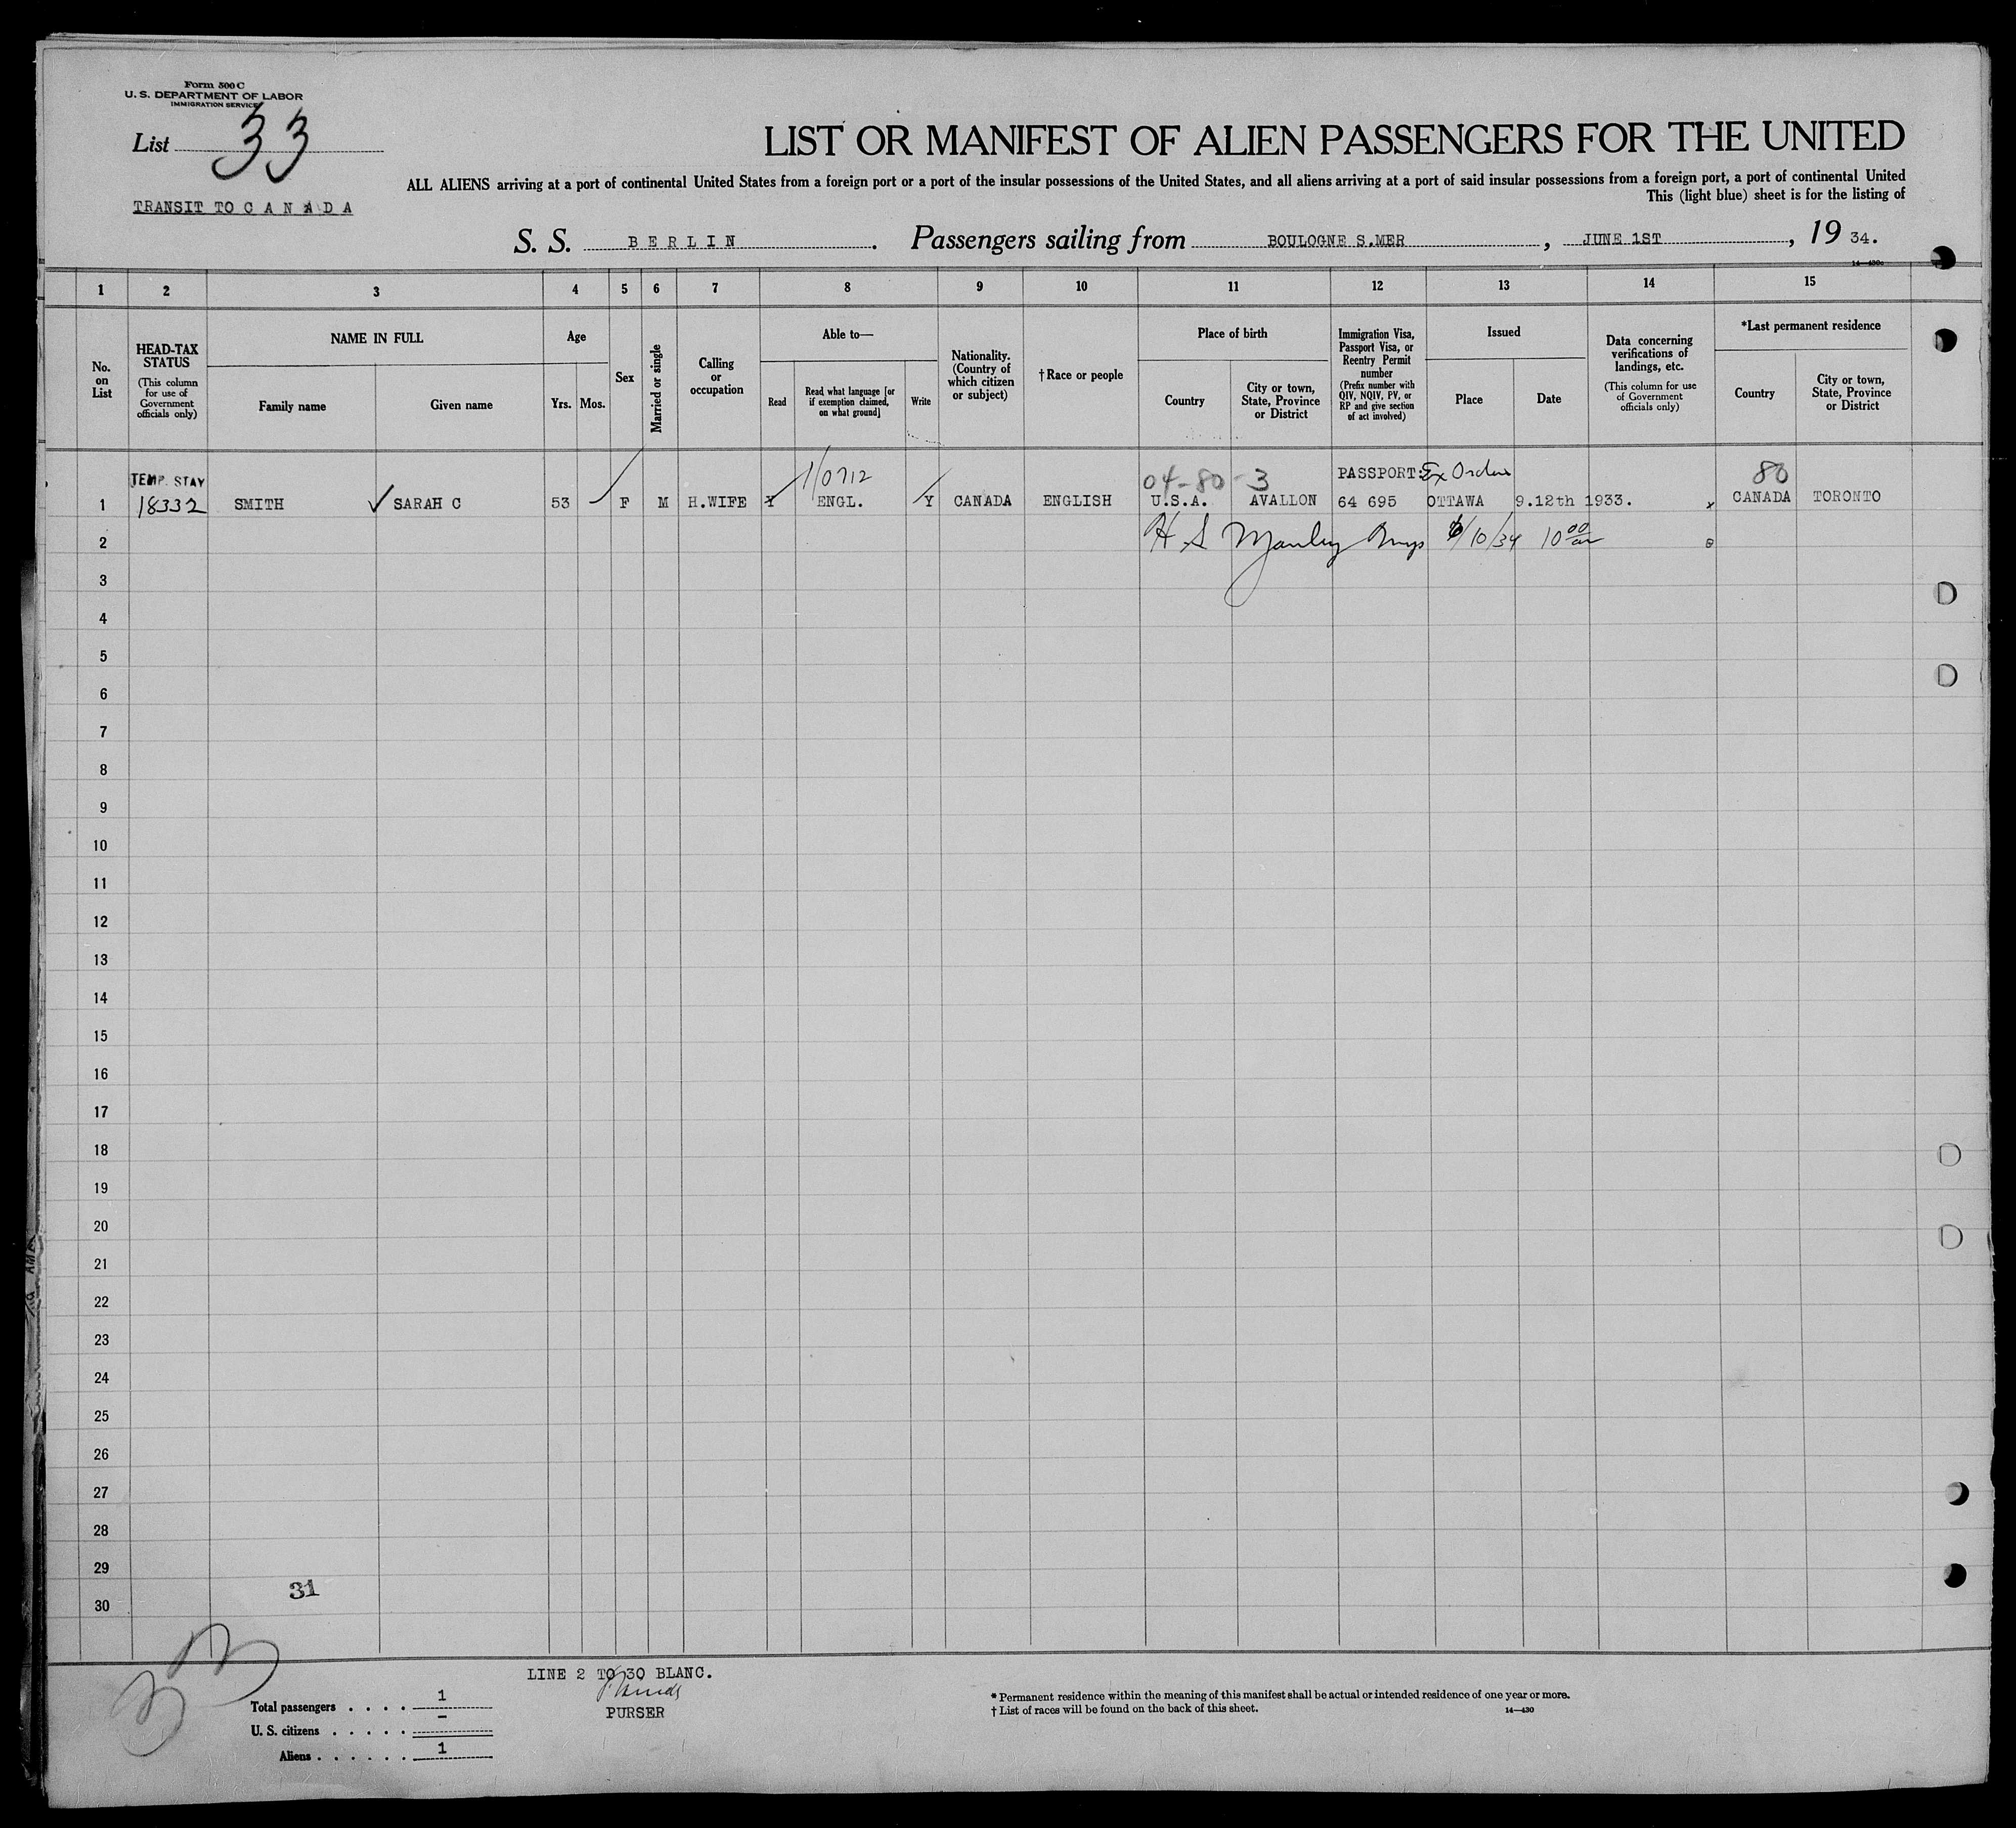 Form 500 C
U. S. DEPARTMENT OF LABOR
IMMIGRATION SERVICE
List 33
TRANSIT TO C A N A D A
LIST OR MANIFEST OF ALIEN PASSENGERS FOR THE UNITED
ALL ALIENS arriving at a port of continental United States from a foreign port or a port of the insular possessions of the United States, and all aliens arriving at a port of said insular possessions from a foreign port, a port of continental United
This (light blue) sheet is for the listing of
S. S. B E R L I N . Passengers sailing from BOULOGNE S.MER , JUNE 1ST , 19 34.
14—430c
1 2 3 4 5 6 7 8 9 10 11 12 13 14 15
No. on List
HEAD-TAX STATUS
(This column for use of Government officials only)
NAME IN FULL
Family name
Given name
Age
Yrs. Mos.
Sex
Married or single
Calling or occupation
Able to—
Read
Read what language [or if exemption claimed, on what ground]
Write
Nationality. (Country of which citizen or subject)
† Race or people
Place of birth
Country
City or town, State, Province or District
Immigration Visa, Passport Visa, or Reentry Permit number
(Prefix number with QIV, NQIV, PV, or RP and give section of act involved)
Issued
Place
Date
Data concerning verifications of landings, etc.
(This column for use of Government officials only)
*Last permanent residence
Country
City or town, State, Province or District
TEMP. STAY 1/0712 04-80-3 PASSPORT: Ex Order 80
1 18332 SMITH ✓ SARAH C 53 F M H.WIFE Y ENGL. Y CANADA ENGLISH U.S.A. AVALLON 64 695 OTTAWA 9.12th 1933. x CANADA TORONTO
2 H S Manley 6/10/34 10 00
3
4
5
6
7
8
9
10
11
12
13
14
15
16
17
18
19
20
21
22
23
24
25
26
27
28
29
31
30
33
LINE 2 TO 30 BLANC.
PURSER
Total passengers . . . . 1
U. S. citizens . . . . . –
Aliens . . . . . . 1
* Permanent residence within the meaning of this manifest shall be actual or intended residence of one year or more.
† List of races will be found on the back of this sheet.
14—430